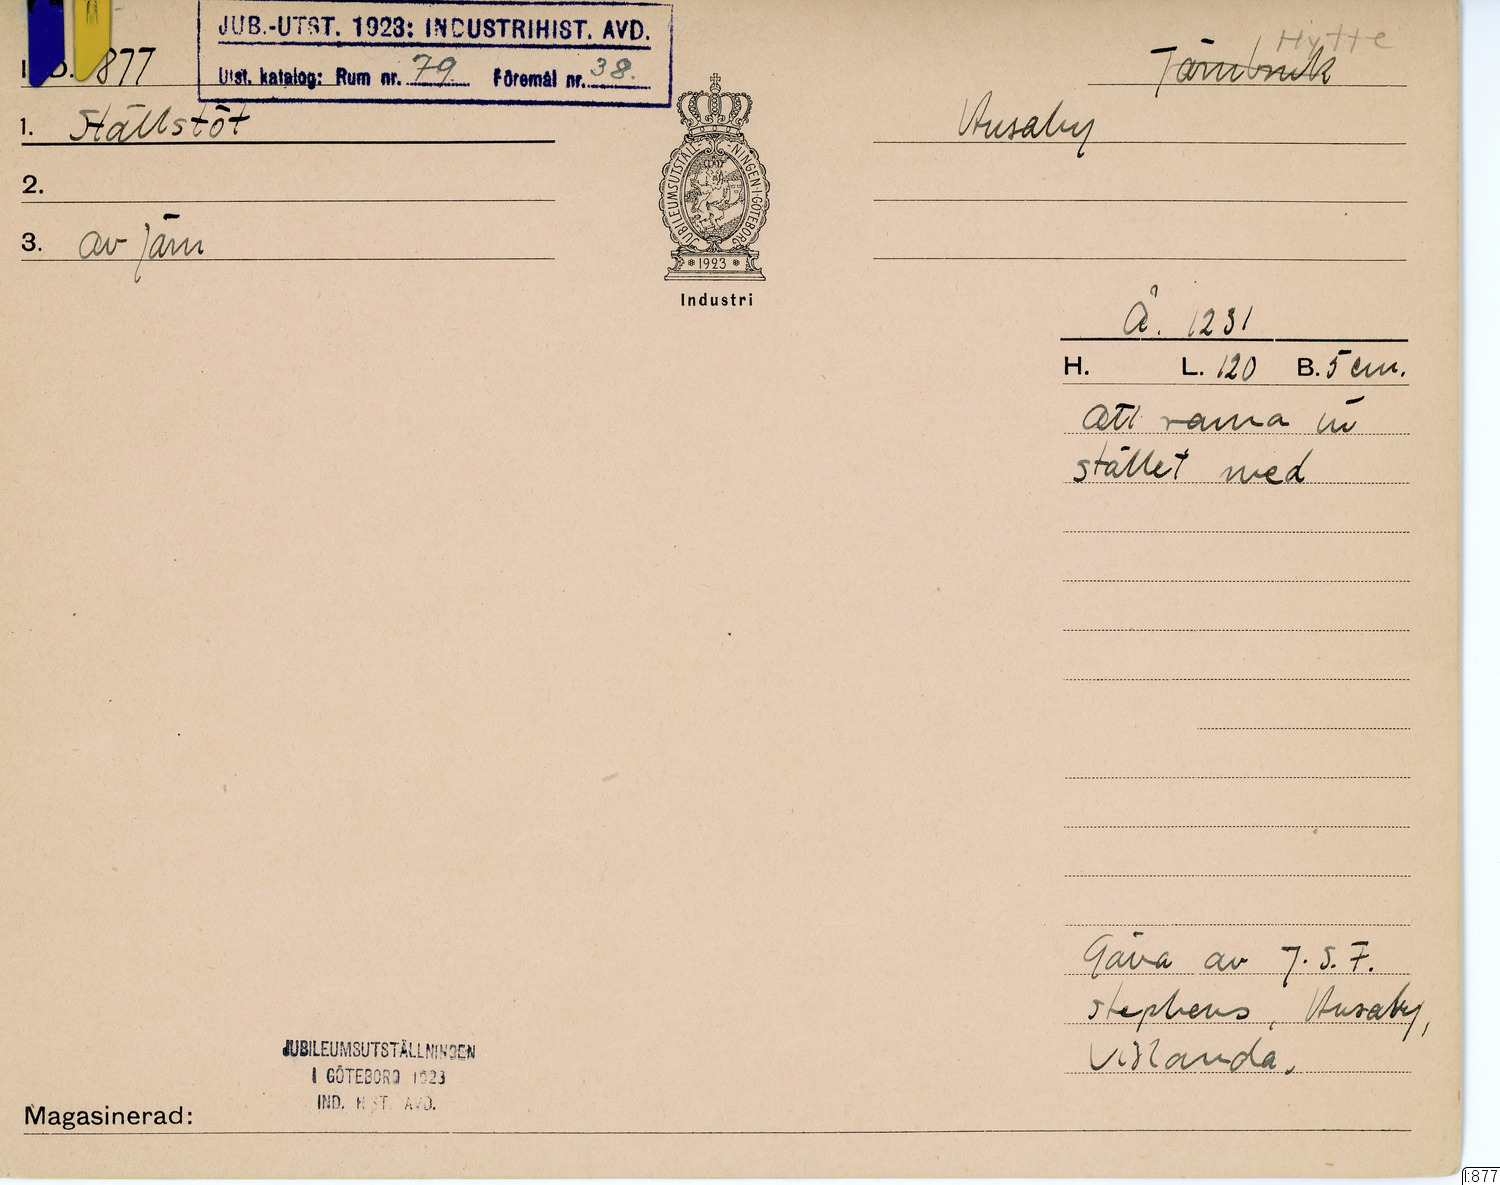 JUB.-UTST. 1923: INDUSTRIHIST. AVD.
Utst. katalog: Rum nr. 79 Föremål nr. 38.
877
Hytte
Järnbruk
1. Ställstöt
Husaby
2.
3. av järn
JUBILEUMSUTSTÄLLNINGEN·I·GÖTEBORG
1923
Industri
Å. 1231
H. L. 120 B. 5 cm.
Att rama in
stället med
Gåva av J. S. F.
Stephens, Husaby,
Vislanda.
JUBILEUMSUTSTÄLLNINGEN
I GÖTEBORG 1923
IND. HIST. AVD.
Magasinerad:
I:877